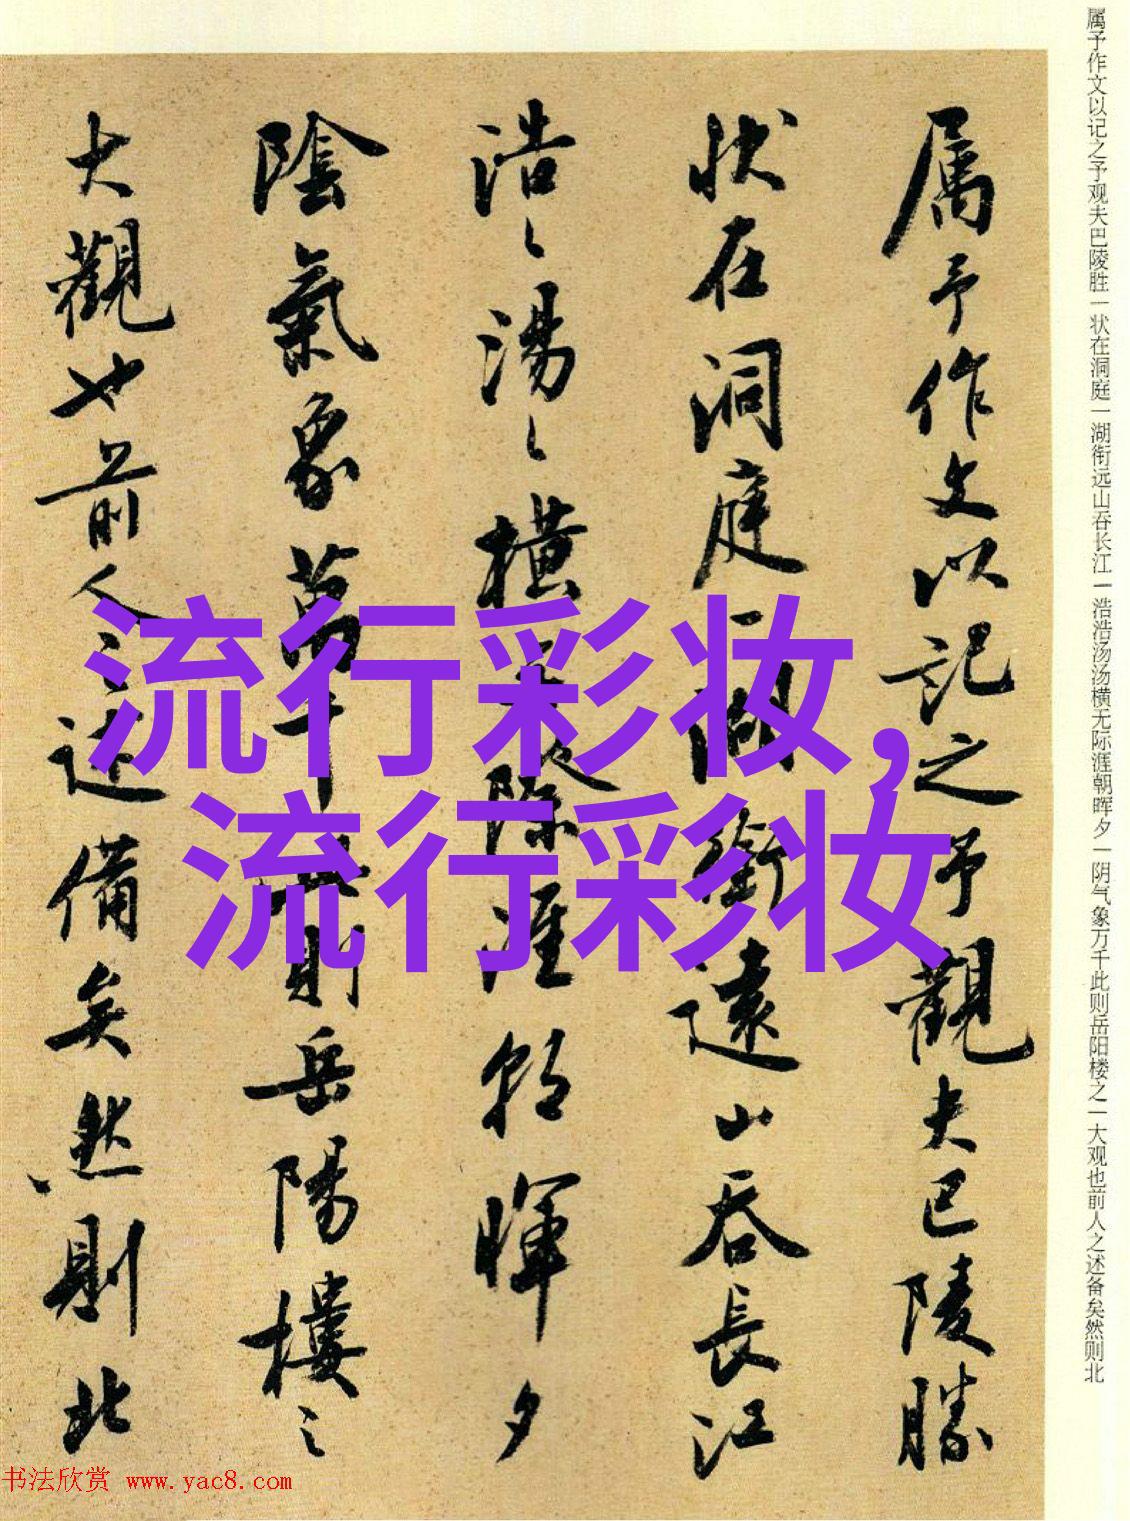 属予作文以记之予观夫巴陵胜一状在洞庭一湖衔远山吞长江一浩浩汤汤横无际涯朝晖夕一阴气象万千此则岳阳楼之一大观也前人之述备矣然则北
属予作文以記之予觀夫巴陵勝
状在洞庭一湖銜遠山吞長江
浩〻湯〻橫無際涯朝暉夕
陰氣象萬千此則岳陽樓之
大觀也前人之述備矣然則北
流行彩妆,
流行彩妆
书法欣赏 www.yac8.com